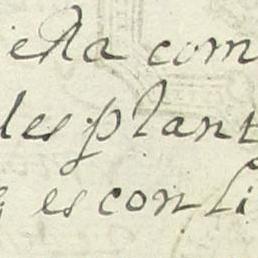 esta com
des plant
es con li